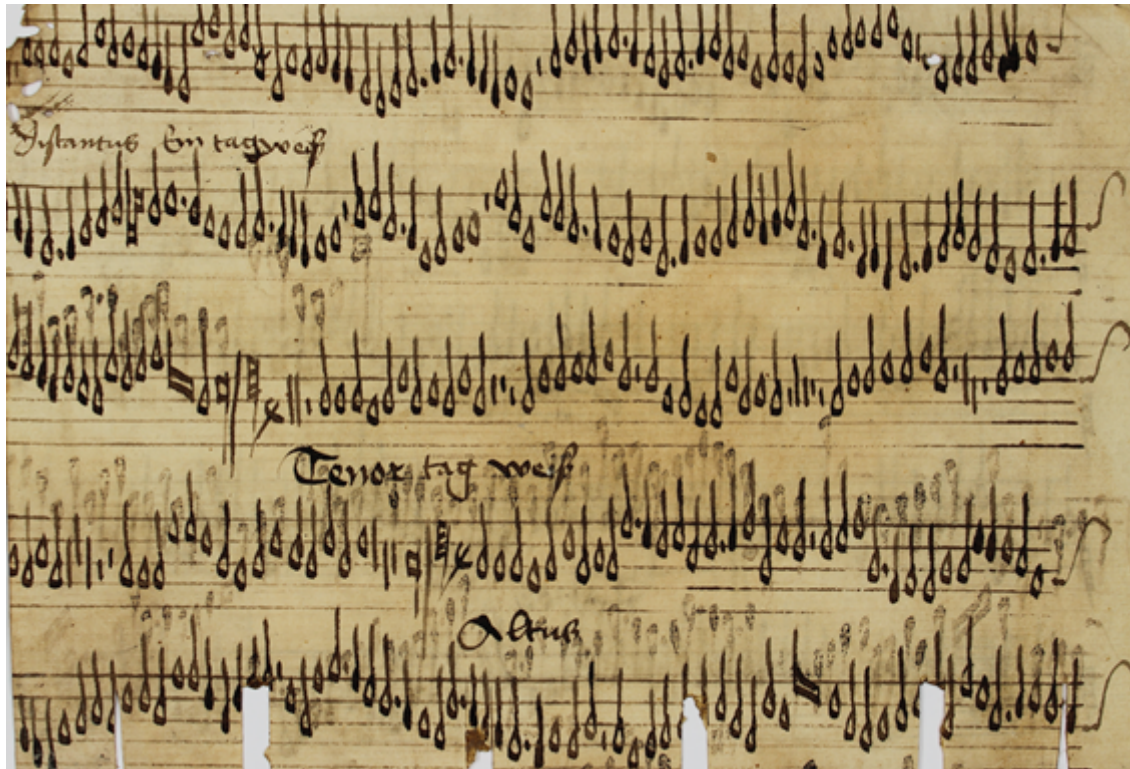 Discantus Ein tagweiß
Tenor tag weiß
Altus